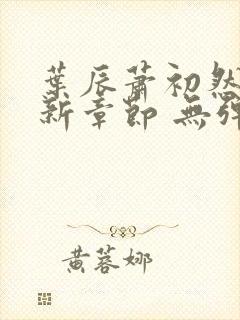 葉辰蕭初然
新章節 無彈
黃蓉娜